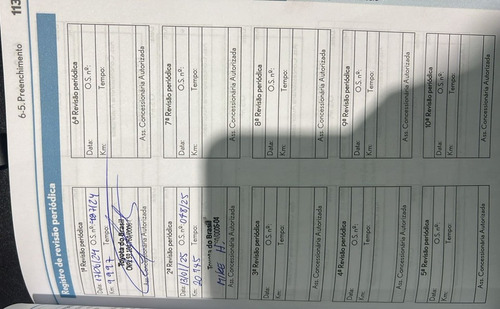 6-5. Preenchimento
113
Registro de revisão periódica
1ª Revisão periódica
Data: O.S. nº:
Km: 9997 Tempo:
Toyota do Brasil
Ass. Concessionária Autorizada
2ª Revisão periódica
Data: 13/01/25 O.S. nº: 098/25
Km: 20.945 Tempo:
Toyota do Brasil
MIKE H.
Ass. Concessionária Autorizada
3ª Revisão periódica
Data: O.S. nº:
Km: Tempo:
Ass. Concessionária Autorizada
4ª Revisão periódica
Data: O.S. nº:
Km: Tempo:
Ass. Concessionária Autorizada
5ª Revisão periódica
Data: O.S. nº:
Km: Tempo:
Ass. Concessionária Autorizada
6ª Revisão periódica
Data: O.S. nº:
Km: Tempo:
Ass. Concessionária Autorizada
7ª Revisão periódica
Data: O.S. nº:
Km: Tempo:
Ass. Concessionária Autorizada
8ª Revisão periódica
Data: O.S. nº:
Km: Tempo:
Ass. Concessionária Autorizada
9ª Revisão periódica
Data: O.S. nº:
Km: Tempo:
Ass. Concessionária Autorizada
10ª Revisão periódica
Data: O.S. nº:
Km: Tempo:
Ass. Concessionária Autorizada